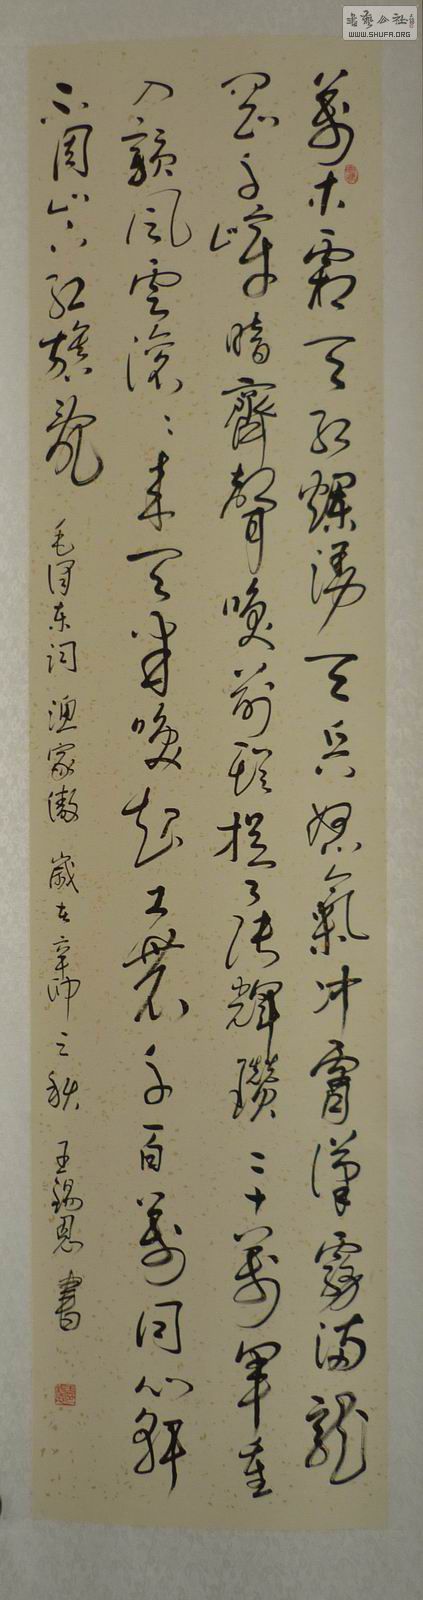 萬木霜天紅爛漫天兵怒氣冲霄漢霧滿龍
岡千嶂暗齊聲喚前頭捉了張輝瓚二十萬軍重
入贛風雲滾〻來天半喚起工農千百萬同心幹
不周山下紅旗亂 毛澤东词 漁家傲 歲在辛卯之秋 王錫恩書
書藝公社
WWW.SHUFA.ORG